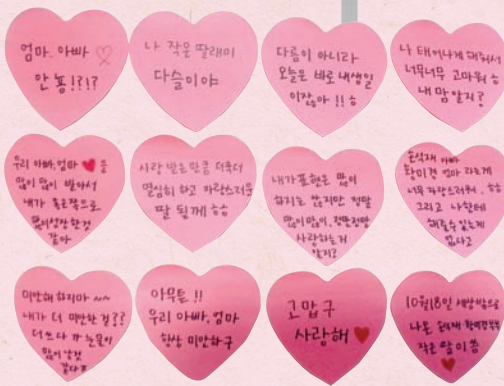 엄마. 아빠 ♡
안뇽!?!?
나 작은 딸래미
다슬이야
다름이 아니라
오늘은 바로 내생일
이잖아!! ㅎ
나 태어나게 해줘서
너무너무 고마워 ㅎ
내 맘 알지?
우리 아빠, 엄마 ♥을
많이 많이 받아서
내가 몸은 쪽으로
많이성장한것
같아
사랑 받은 만큼 더욱더
열심히 하고 자랑스러운
딸 될께 ㅎㅎ
내가표현은 많이
하지는 않지만 정말
많이많이, 정말정말
사랑하는거
알지?
손식재 아빠
황미견 엄마 라는게
너무 자랑스러워.. ㅎㅎ
그리고 나한테
해줄수 있는게
없다고
미안해 하지마 ~~
내가 더 미안한 걸??
더쓰다 ㅠ 눈물이
많이 날것
같다ㅠ
아무튼!!
우리 아빠. 엄마
항상 미안하구
고맙구
사랑해 ♥
10월18일 세상밖으로
나온
작은 딸이쏭
♥